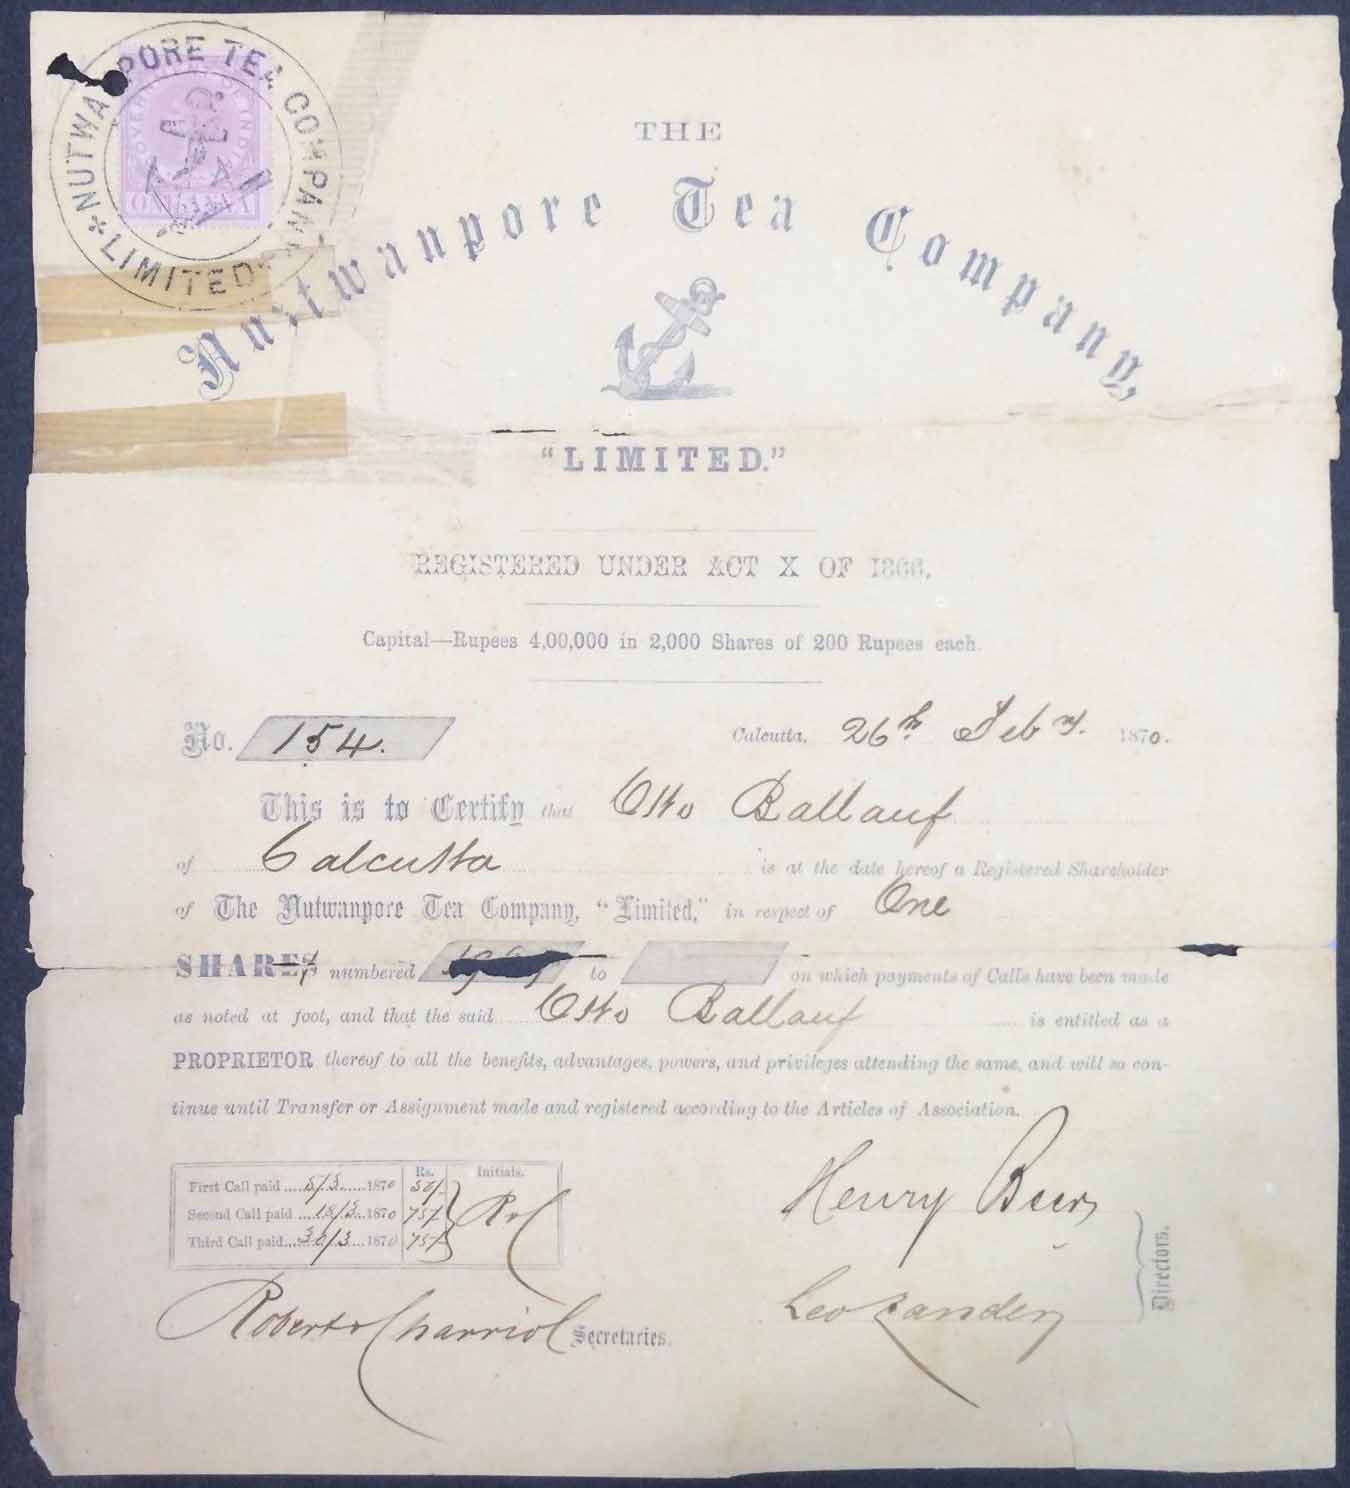 NUTWANPORE TEA COMPANY
LIMITED
GOVERNMENT OF INDIA
ONE ANNA
THE
Nutwanpore Tea Company,
"LIMITED."
REGISTERED UNDER ACT X OF 1866.
Capital—Rupees 4,00,000 in 2,000 Shares of 200 Rupees each.
No. 154. Calcutta, 26th Feby. 1870.
This is to Certify that Otto Ballauf
of Calcutta is at the date hereof a Registered Shareholder
of The Nutwanpore Tea Company, "Limited," in respect of One
SHARES numbered to on which payments of Calls have been made
as noted at foot, and that the said Otto Ballauf is entitled as a
PROPRIETOR thereof to all the benefits, advantages, powers, and privileges attending the same, and will so con-
tinue until Transfer or Assignment made and registered according to the Articles of Association.
Rs. Initials.
First Call paid 5/3 1870 50/-
Second Call paid 15/3 1870 75/-
Third Call paid 30/3 1870 75/-
RcC
Henry
Leo Zander
Directors.
Robert Charriol Secretaries.